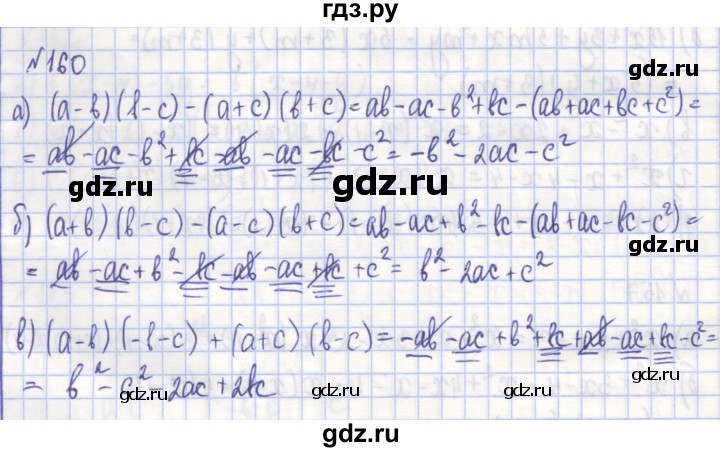 гдз.ру
№160
а) (a-b)(b-c)-(a+c)(b+c)=ab-ac-b²+bc-(ab+ac+bc+c²)=
= ab-ac-b²+bc-ab-ac-bc-c²=-b²-2ac-c²
gdz.ru gdz.ru gdz.ru
б) (a+b)(b-c)-(a-c)(b+c)=ab-ac+b²-bc-(ab+ac-bc-c²)=
gdz.ru gdz.ru gdz.ru
= ab-ac+b²-bc-ab-ac+bc+c²= b²-2ac+c²
в) (a-b)(-b-c)+(a+c)(b-c)=-ab-ac+b²+bc+ab-ac+bc-c²=
= b²-c²-2ac+2bc
gdz.ru gdz.ru gdz.ru
gdz.ru